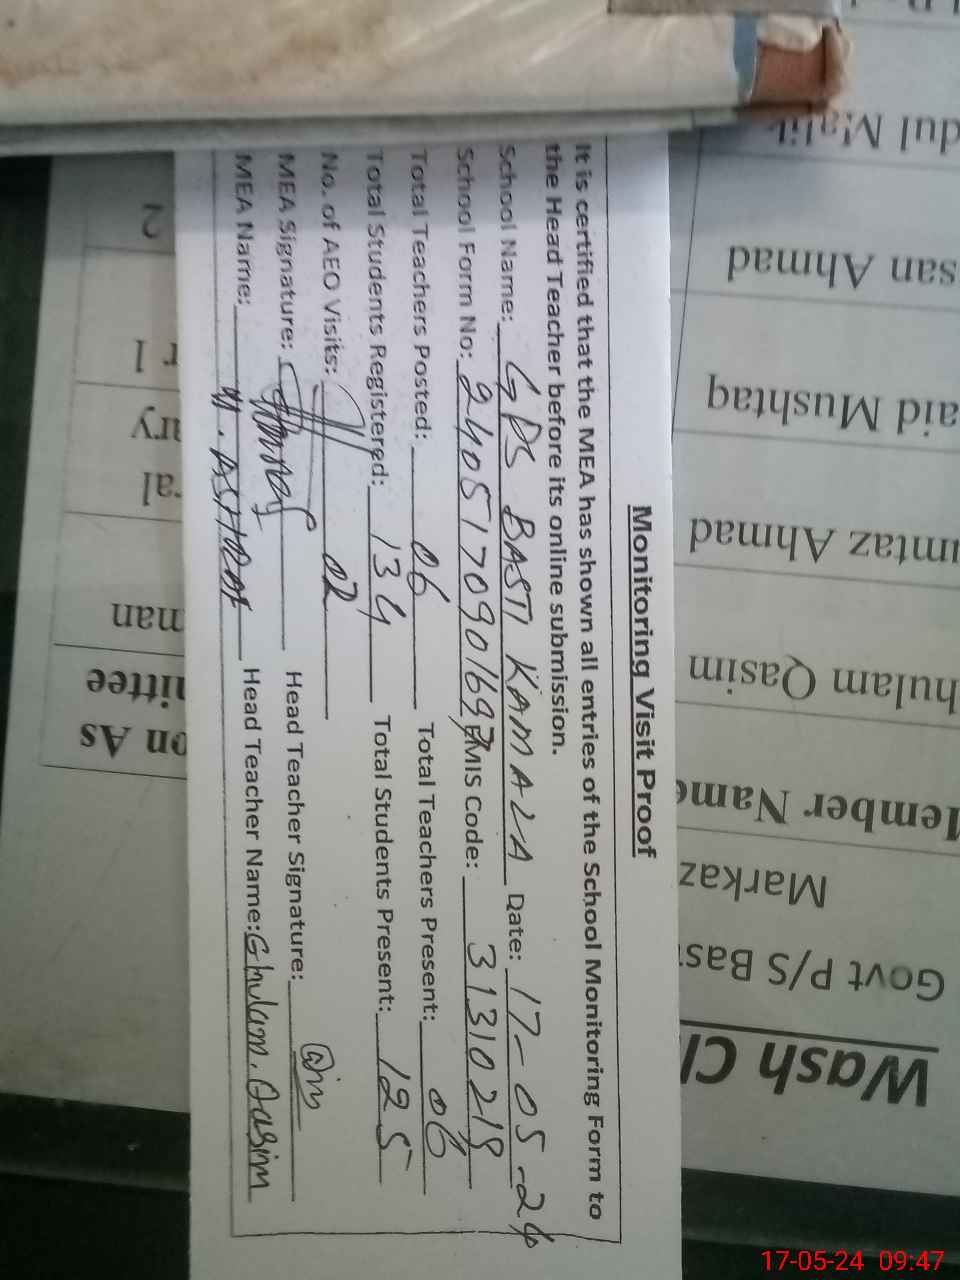 Monitoring Visit Proof
It is certified that the MEA has shown all entries of the School Monitoring Form to
the Head Teacher before its online submission.
School Name: GPS BASTI KAMALA Date: 17-05-24
School Form No: 2405170901697 EMIS Code: 31310218
Total Teachers Posted: 06 Total Teachers Present: 06
Total Students Registered: 134 Total Students Present: 125
No. of AEO Visits: 02
MEA Signature: Head Teacher Signature:
MEA Name: M. ASHRAF Head Teacher Name: Ghulam Qasim
Wash Cl
Govt P/S Bas
Markaz
Member Name
hulam Qasim
mtaz Ahmad
aid Mushtaq
san Ahmad
dul Malik
on As
nittee
man
ral
ary
r 1
2
17-05-24 09:47